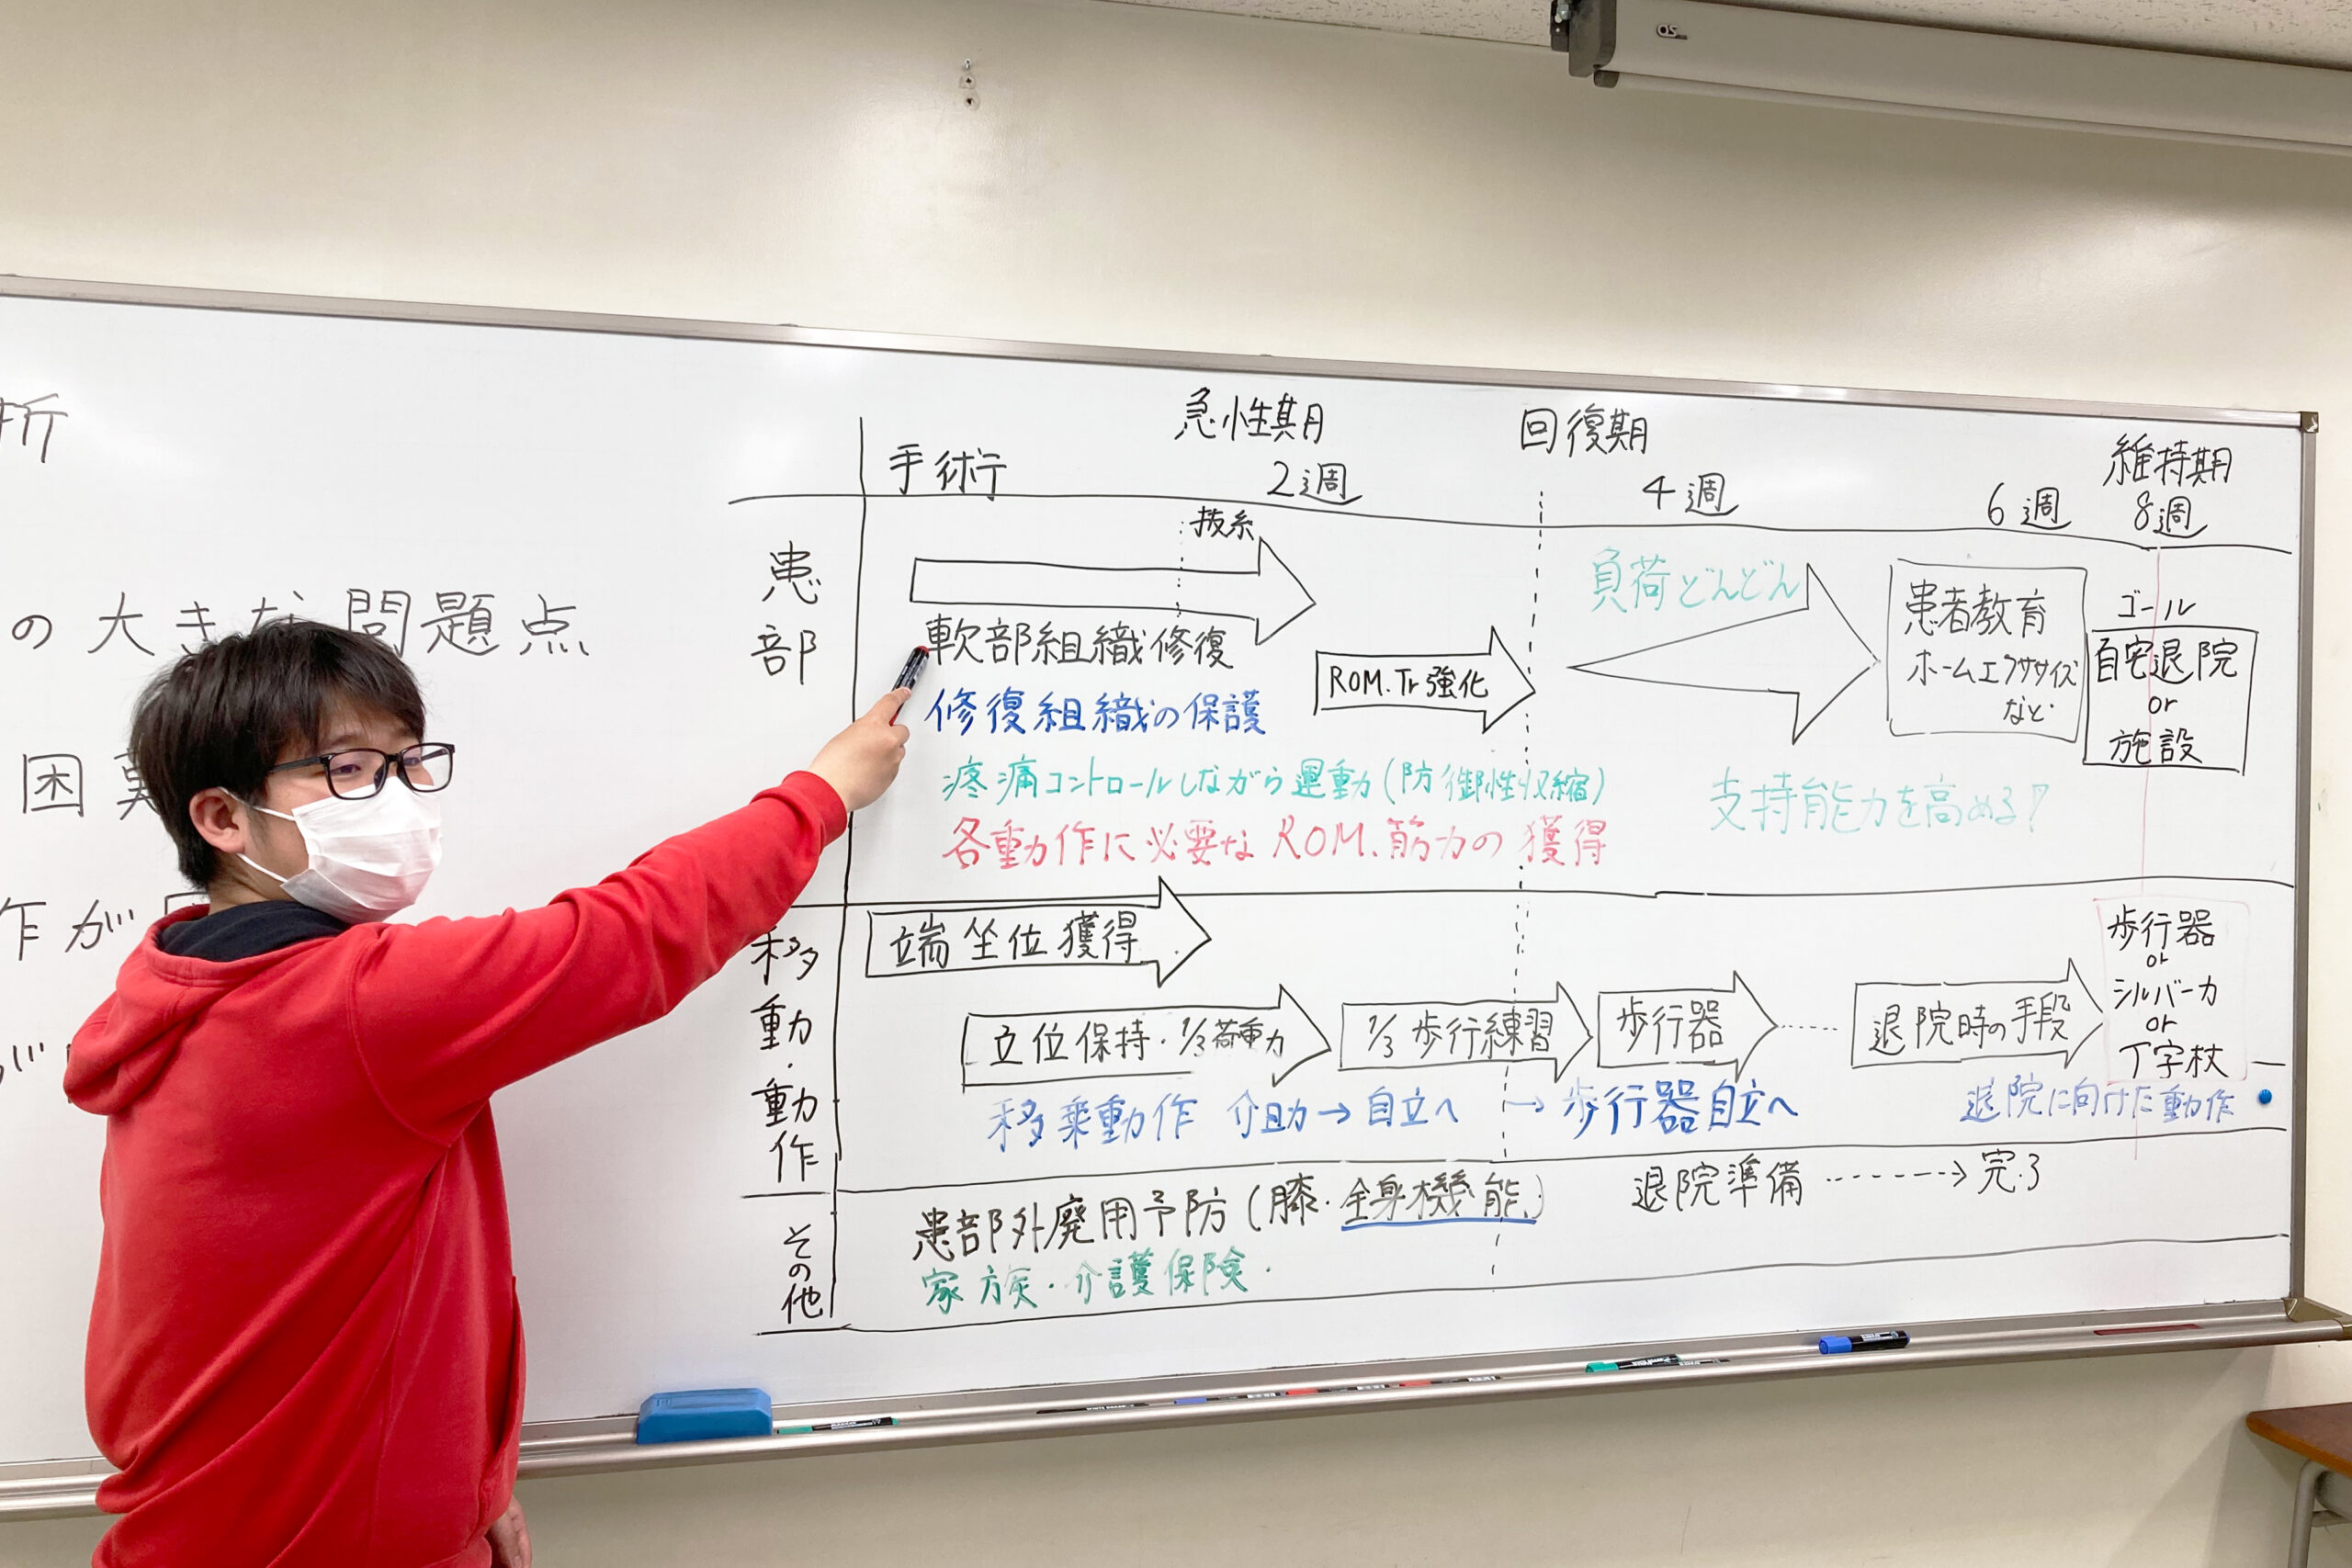 折
の大きな問題点
困
作が
が
急性期
回復期
維持期
手術
2週
4週
6週
8週
患部
抜糸
軟部組織修復
修復組織の保護
疼痛コントロールしながら運動(防御性収縮)
各動作に必要なROM.筋力の獲得
ROM.Tr強化
負荷どんどん
支持能力を高める?
患者教育
ホームエクササイズ
など
ゴール
自宅退院
or
施設
移動・動作
端坐位獲得
立位保持・1/3荷重力
1/3歩行練習
歩行器
退院時の手段
歩行器
or
シルバーカ
or
T字杖
移乗動作 介助→自立へ → 歩行器自立へ
退院に向けた動作
その他
患部外廃用予防(膝・全身機能)
家族・介護保険・
退院準備 → 完了
OS